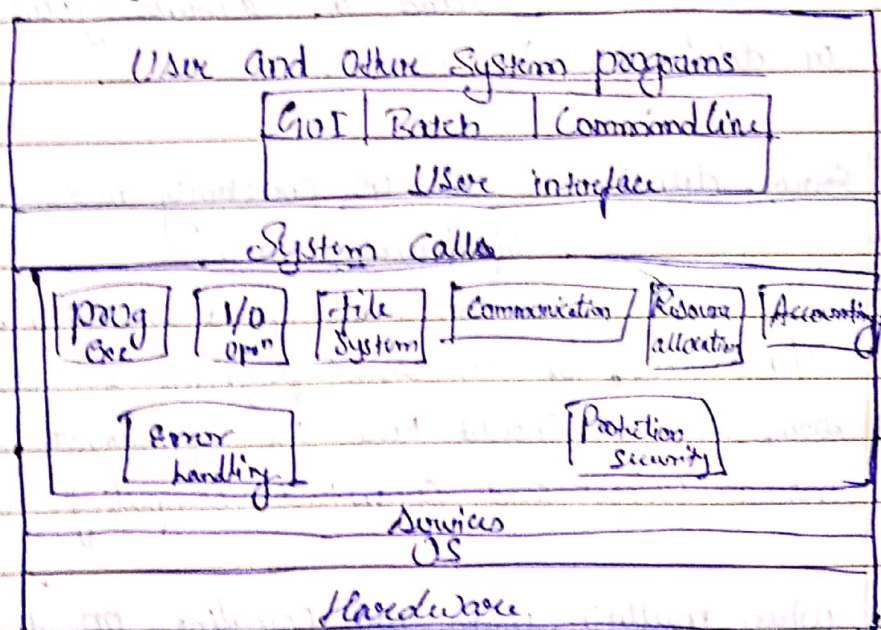 User and Other System programs
GUI Batch Commandline
User interface
System Calls
prog exec I/O oprⁿ file System Communication Resource allocation Accounting
Error handling Protection Security
Services
OS
Hardware